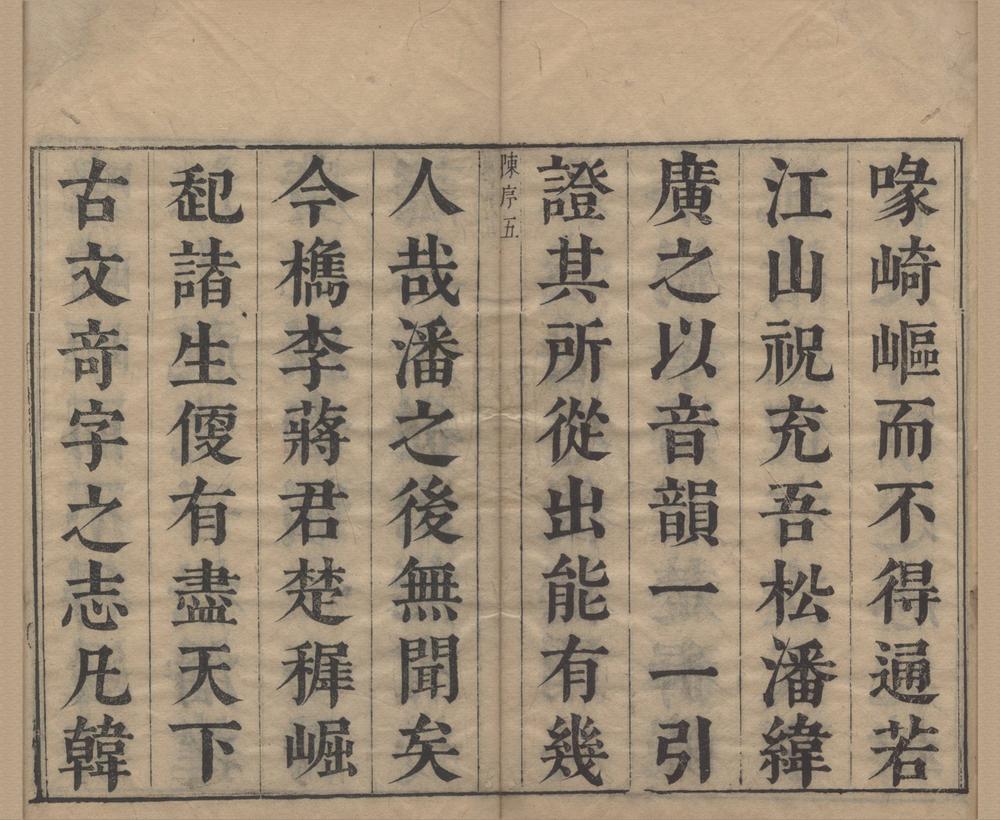 喙崎嶇而不得通若
江山祝充吾松潘緯
廣之以音韻一一引
證其所從出能有幾
陳序五
人哉潘之後無聞矣
今檇李蔣君楚穉崛
起諸生便有盡天下
古文奇字之志凡韓